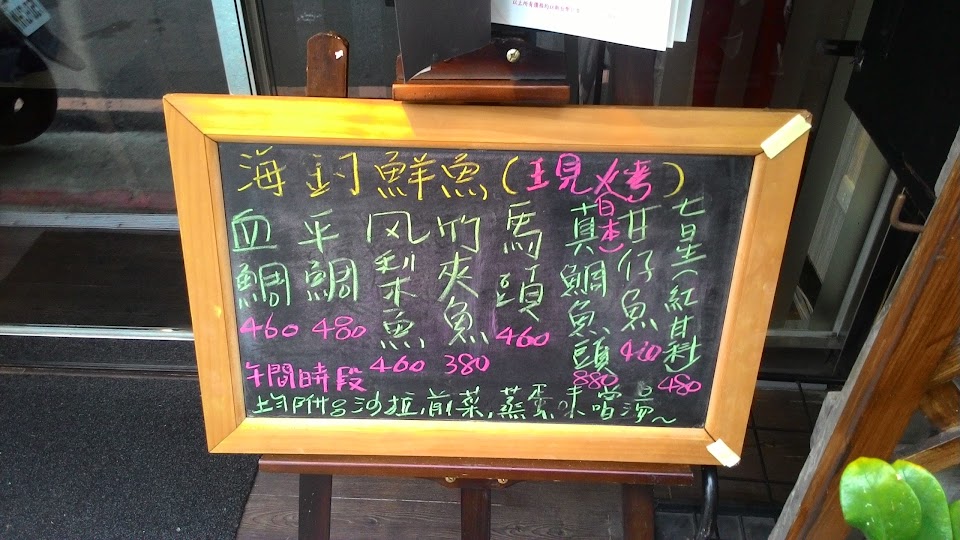 海釣鮮魚(現烤)
血鯛 460
平鯛 480
风梨魚 460
竹夾魚 380
馬頭 460
真鯛魚頭 880
(日本)
甘仔魚 420
七星(紅甘科) 480
午間時段
上均附沙拉,前菜,蒸蛋,味噌湯~